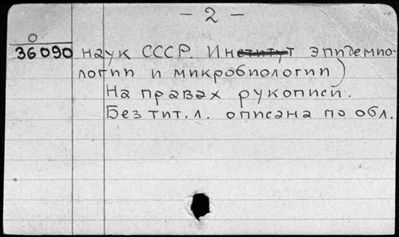 - 2 -
О
36090 наук СССР. Институт эпидемио-
логии и микробиологии)
На правах рукописи.
Без тит. л. описана по обл.